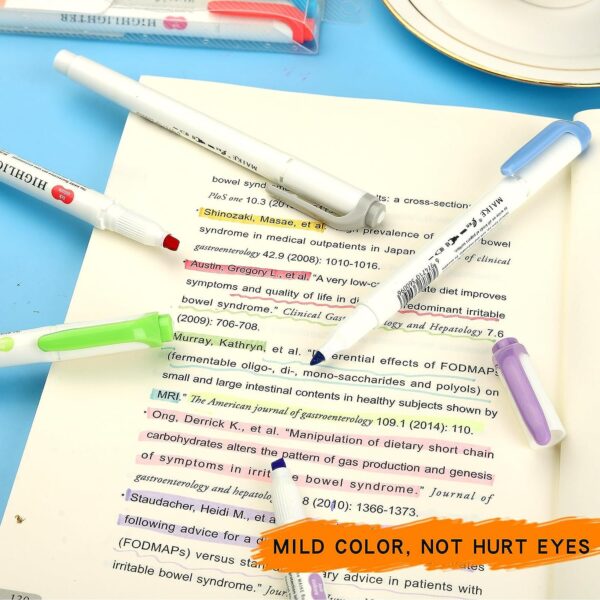 HIGHLIGHTER
bowel synd a cross-section
PloS one 10.3 MAIKE
HIGHLIGH
Shinozaki, Masae, et al. prevalence of bowel
syndrome in medical outpatients in Japan of clinical
gastroenterology 42.9 (2008): 1010-1016.
MAIKE
Austin, Gregory L., et al. "A very low-c ate diet improves
symptoms and quality of life in di edominant irritable
bowel syndrome." Clinical Ga gy and Hepatology 7.6
(2009): 706-708.
Murray, Kathryn, et al. " erential effects of FODMAPs
(fermentable oligo-, di-, mono-saccharides and polyols) on
small and large intestinal contents in healthy subjects shown by
MRI." The American journal of gastroenterology 109.1 (2014): 110.
Ong, Derrick K., et al. "Manipulation of dietary short chain
carbohydrates alters the pattern of gas production and genesis
of symptoms in irrit e bowel syndrome." Journal of
gastroenterology and hepatolog 8 (2010): 1366-1373.
Staudacher, Heidi M., et a
following advice for a d
(FODMAPs) versus stan etary advice in patients with
irritable bowel syndrome." Jour
MILD COLOR, NOT HURT EYES
130